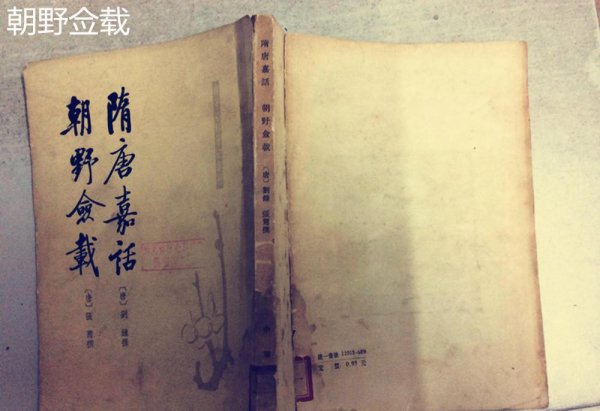 朝野佥载
隋唐嘉話
〔唐〕劉餗撰
朝野僉載
〔唐〕張鷟撰
隋唐嘉話 朝野僉載 〔唐〕劉餗 張鷟撰
中華
統一書號 11018·689
定價 0.95 元